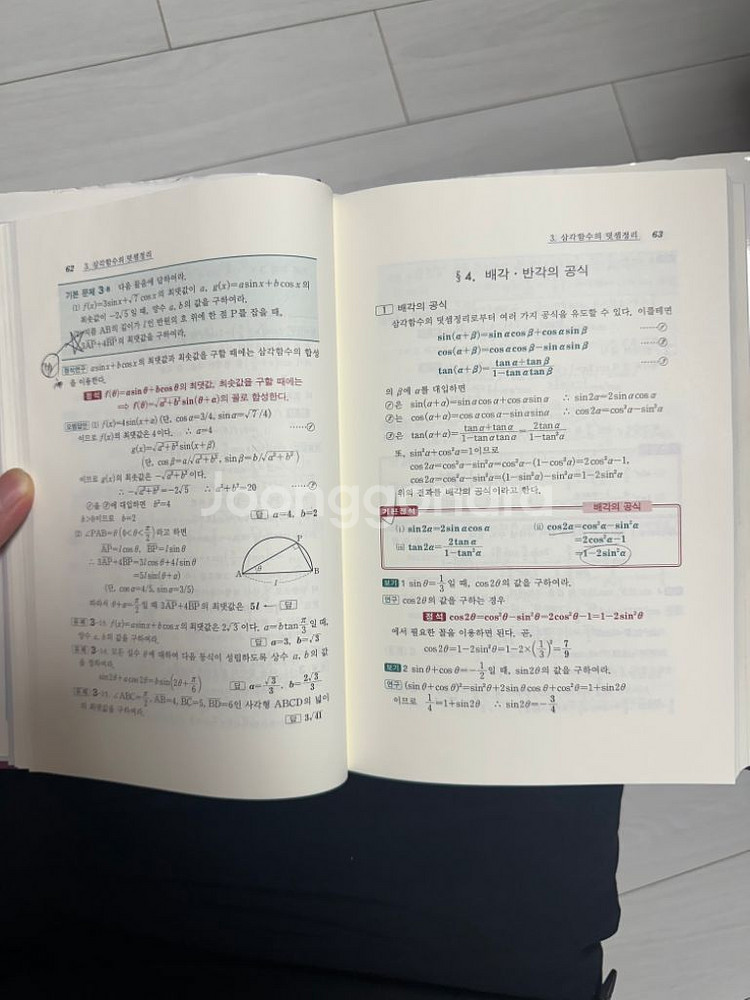 62 3. 삼각함수의 덧셈정리
기본 문제 3-8 다음 물음에 답하여라.
(1) f(x)=3sinx+√7 cosx의 최댓값이 a, g(x)=asinx+bcosx의
최솟값이 -2√5일 때, 양수 a, b의 값을 구하여라.
AB의 길이가 l인 반원의 호 위에 한 점 P를 잡을 때,
3AP+4BP의 최댓값을 구하여라.
정석연구 asinx+bcosx의 최댓값과 최솟값을 구할 때에는 삼각함수의 합성
을 이용한다.
정석 f(θ)=asinθ+bcosθ의 최댓값, 최솟값을 구할 때에는
⇨ f(θ)=√a²+b² sin(θ+α)의 꼴로 합성한다.
모범답안 (1) f(x)=4sin(x+α) (단, cosα=3/4, sinα=√7/4)
이므로 f(x)의 최댓값은 4이다. ∴ a=4 ……㉠
g(x)=√a²+b² sin(x+β)
(단, cosβ=a/√a²+b², sinβ=b/√a²+b²)
이므로 g(x)의 최솟값은 -√a²+b²이다.
∴ -√a²+b²=-2√5 ∴ a²+b²=20 ……㉡
㉠을 ㉡에 대입하면 b²=4
b>0이므로 b=2 답 a=4, b=2
(2) ∠PAB=θ(0<θ<π/2)라고 하면
AP=lcosθ, BP=lsinθ
∴ 3AP+4BP=3lcosθ+4lsinθ
=5lsin(θ+α)
(단, cosα=4/5, sinα=3/5)
따라서 θ+α=π/2일 때 3AP+4BP의 최댓값은 5l ← 답
A θ l B P
유제 3-13. f(x)=asinx+bcosx의 최댓값은 2√3이다. a=btan π/3일 때,
양수 a, b의 값을 구하여라. 답 a=3, b=√3
유제 3-14. 모든 실수 θ에 대하여 다음 등식이 성립하도록 상수 a, b의 값
을 정하여라.
sin2θ+acos2θ=bsin(2θ+π/6) 답 a=√3/3, b=2√3/3
유제 3-15. ∠ABC=π/2, AB=4, BC=5, BD=6인 사각형 ABCD의 넓이
의 최댓값을 구하여라. 답 3√41
3. 삼각함수의 덧셈정리 63
§4. 배각·반각의 공식
1 배각의 공식
삼각함수의 덧셈정리로부터 여러 가지 공식을 유도할 수 있다. 이를테면
sin(α+β)=sinαcosβ+cosαsinβ ……㉠
cos(α+β)=cosαcosβ-sinαsinβ ……㉡
tan(α+β)=(tanα+tanβ)/(1-tanαtanβ) ……㉢
의 β에 α를 대입하면
㉠은 sin(α+α)=sinαcosα+cosαsinα ∴ sin2α=2sinαcosα
㉡는 cos(α+α)=cosαcosα-sinαsinα ∴ cos2α=cos²α-sin²α
㉢은 tan(α+α)=(tanα+tanα)/(1-tanαtanα)=2tanα/(1-tan²α)
또, sin²α+cos²α=1이므로
cos2α=cos²α-sin²α=cos²α-(1-cos²α)=2cos²α-1,
cos2α=cos²α-sin²α=(1-sin²α)-sin²α=1-2sin²α
위의 결과를 배각의 공식이라고 한다.
기본정석 배각의 공식
(i) sin2α=2sinαcosα (ii) cos2α=cos²α-sin²α
=2cos²α-1
(iii) tan2α=2tanα/(1-tan²α) =1-2sin²α
보기 1 sinθ=1/3일 때, cos2θ의 값을 구하여라.
연구 cos2θ의 값을 구하는 경우
정석 cos2θ=cos²θ-sin²θ=2cos²θ-1=1-2sin²θ
에서 필요한 꼴을 이용하면 된다. 곧,
cos2θ=1-2sin²θ=1-2×(1/3)²=7/9
보기 2 sinθ+cosθ=-1/2일 때, sin2θ의 값을 구하여라.
연구 (sinθ+cosθ)²=sin²θ+2sinθcosθ+cos²θ=1+sin2θ
이므로 1/4=1+sin2θ ∴ sin2θ=-3/4
joonggonara